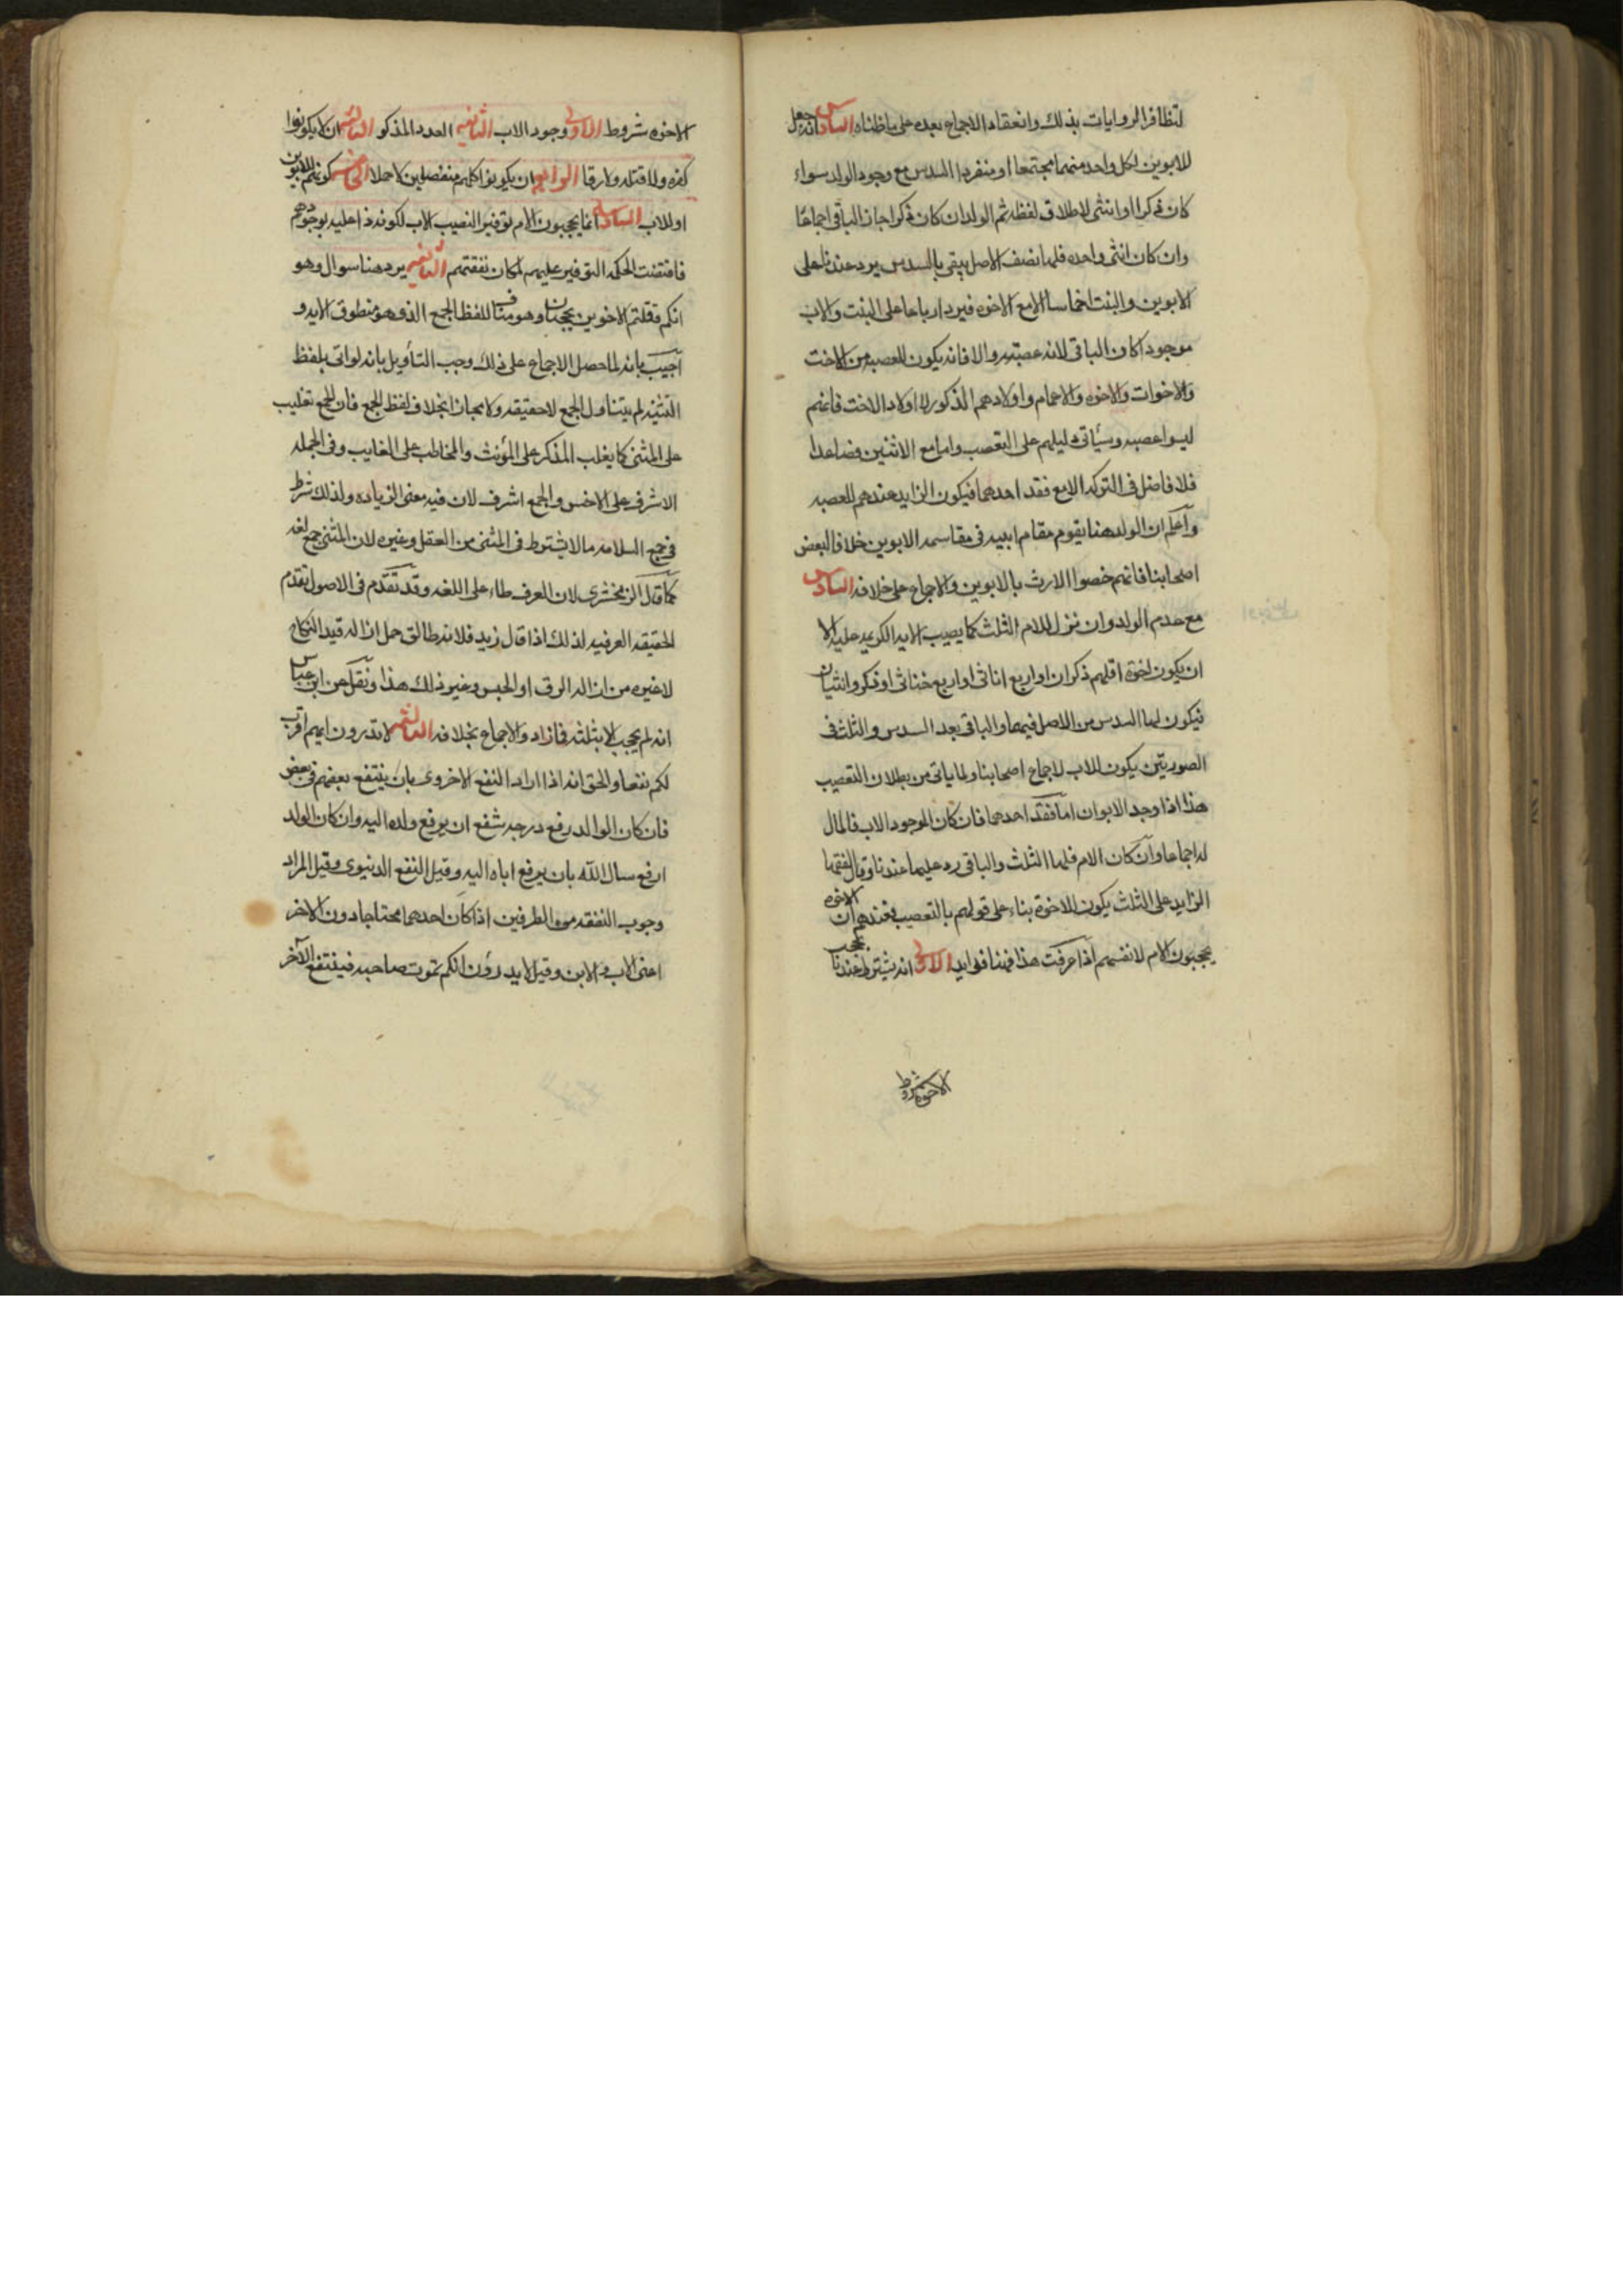 لتظافر الروايات بذلك وانعقاد الاجماع بعده على ما ظنناه السادس انه جعل
للابوين لكل واحد منهما مجتمعا او منفردا السدس مع وجود الولد سواء
كان ذكرا او انثى لاطلاق لفظه ثم الولد ان كان ذكرا حاز الباقي اجماعا
وان كان انثى واحده فلها نصف الاصل يبقى بالسدس يرد عندنا على
الابوين والبنت اخماسا الا مع الاخوه فيرد ارباعا على البنت والاب
موجود اكان الباقي لانه عصبته والا فانه يكون للعصبه من الاخت
والاخوات والاخوه والاعمام واولادهم الذكور لا اولاد الاخت فانهم
ليسوا عصبه وسيأتي دليلهم على التعصب واما مع الاثنين فصاعدا
فلا فاضل في التركه الا مع فقد احدهما فيكون الزايد عندهم للعصبه
واعلم ان الولد هنا يقوم مقام ابيه في مقاسمه الابوين خلافا لبعض
اصحابنا فانهم خصوا الارث بالابوين والاجماع على خلافه السادس
مع عدم الولد وان نزل للام الثلث كما يصيب الايه الكريمه عليه الا
ان يكون اخوة اقلهم ذكران او اربع اناث او اربع خناثى او ذكر وانثيان
فيكون لها السدس من الاصل فيهما والباقي بعد السدس والثلث في
الصورتين يكون للاب لاجماع اصحابنا ولما ياتي من بطلان التعصيب
هذا اذا وجد الابوان اما فقد احدهما فان كان الموجود الاب فالمال
له اجماعا وان كان الام فلها الثلث والباقي رد عليها عندنا وقال الفقها
الزايد على الثلث يكون للاخوة بناء على قولهم بالتعصيب فعندهم ان الاخوه
يحجبون الام لانفسهم اذا عرفت هذا فهنا فوايد الاولى انه يشترط عندنا بحجب
الاخوه شروط
الاخوه شروط الاولى وجود الاب الثانيه العدد المذكور الثالثه ان لا يكونوا
كفره ولا قتله ولا رقا الرابعه ان يكونوا كلهم منفصلين لا حملا الخامسه كونهم للابوين
او للاب السادسه انما يحجبون الام توفير النصيب الاب لكونه ذا عليه بوجودهم
فاقتضت الحكمه التوفير عليهم لمكان نفقتهم الثانيه يرد هنا سوال وهو
انكم قد قلتم الاخوين يحجبان وهو مناف للفظ الجمع الذي هو منطوق الايه و
اجيب بانه لما حصل الاجماع على ذلك وجب التأويل بانه لو اتى بلفظ
التثنيه لم يتناول الجمع لا حقيقه ولا مجازا بخلاف لفظ الجمع فان للجمع تغليب
على المثنى كما يغلب المذكر على المؤنث والمخاطب على الغايب وفي الجمله
الاشرف على الاخس والجمع اشرف لان فيه معنى الزياده ولذلك شرط
في جمع السلامه ما لا يشترط في المثنى من العقل وغيره لان المثنى جمع لغه
كما قال الزمخشرى لان العرف طاء على اللغه وقد تقدم في الاصول تقدم
الحقيقه العرفيه لذلك اذا قال زيد فلانه طالق حمل ازاله قيد النكاح
لا غيره من ازاله الرق او الحبس وغير ذلك هذا ونقل عن ابن عباس
انه لم يحجب الا بثلثه فازاد والاجماع بخلافه الثالثه لا تدرون ايهم اقرب
لكم نفعا والحق انه اذا اراد النفع الاخروى بان ينتفع بعضهم في بعض
فان كان الوالد رفع درجه شفع ان يرفع ولده اليه وان كان الولد
ارفع سال الله بان يرفع اباه اليه وقيل النفع الدنيوى وقيل المراد
وجوب النفقه من الطرفين اذا كان احدهما محتاجا دون الاخر
اعنى الاب والابن وقيل لا يدرون انكم يموت صاحبه فينتفع الآخر